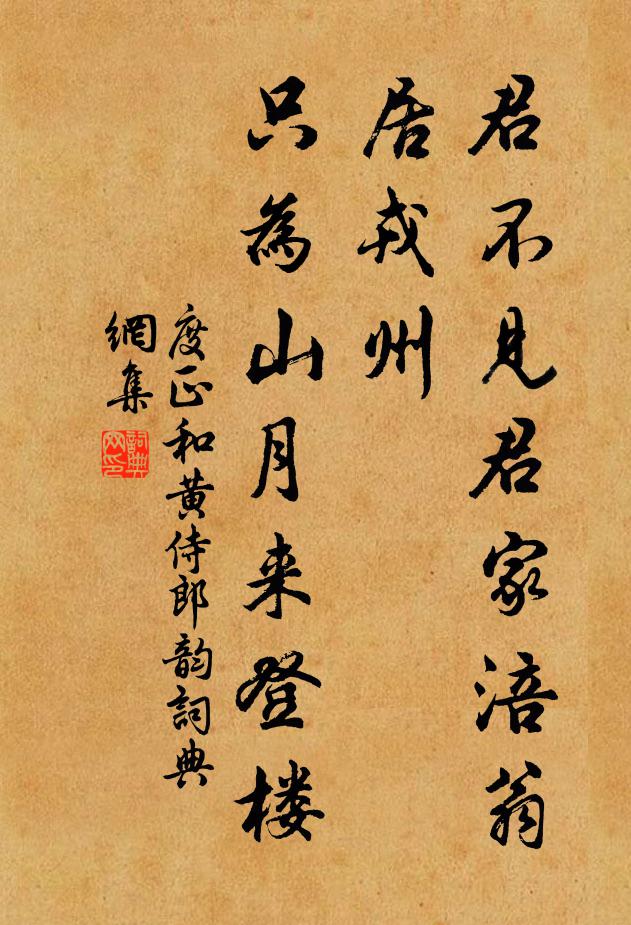 君不見君家涪翁
居戎州
只為山月来登楼
度正和黄侍郎韵詞典
網集
詞典
网印